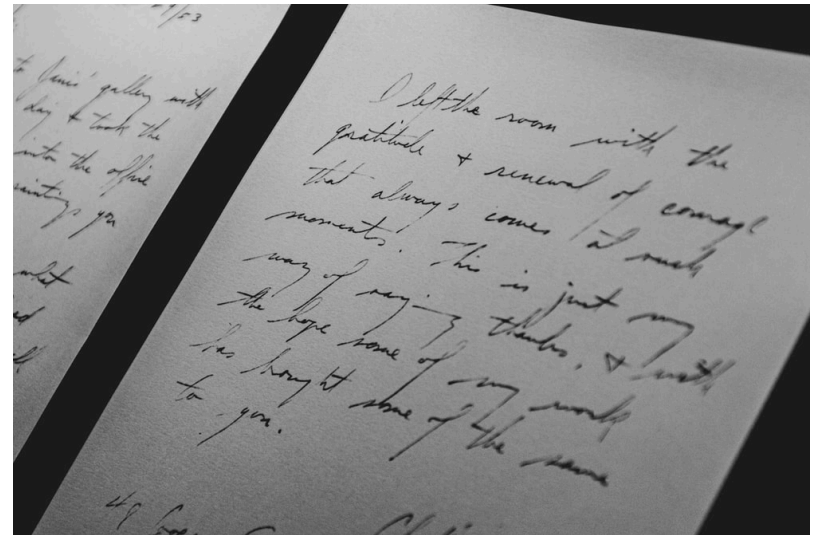 /53
to Janis' gallery with
day & took the
into the office
paintings you
what
I left the room with the
gratitude & renewal of courage
that always comes at such
moments. This is just my
way of saying thanks, & with
the hope some of my work
has brought some of the same
to you.
48